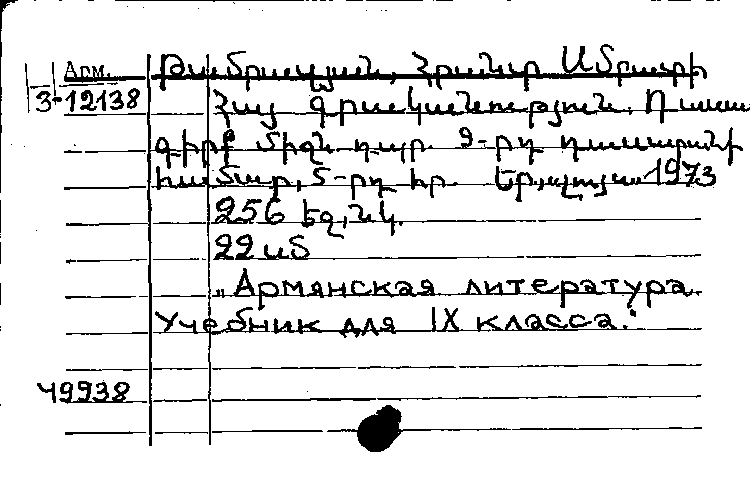 Арм. Թամրազյան, Հրանտ Սմբատի
3-12138 Հայ գրականություն. Դասա
գիրք միջն. դպր. 9-րդ դասարանի
համար, 5-րդ հր. Եր., „Լույս„ 1973
256 էջ, նկ.
22 սմ
„Армянская литература.
Учебник для IX класса."
49938